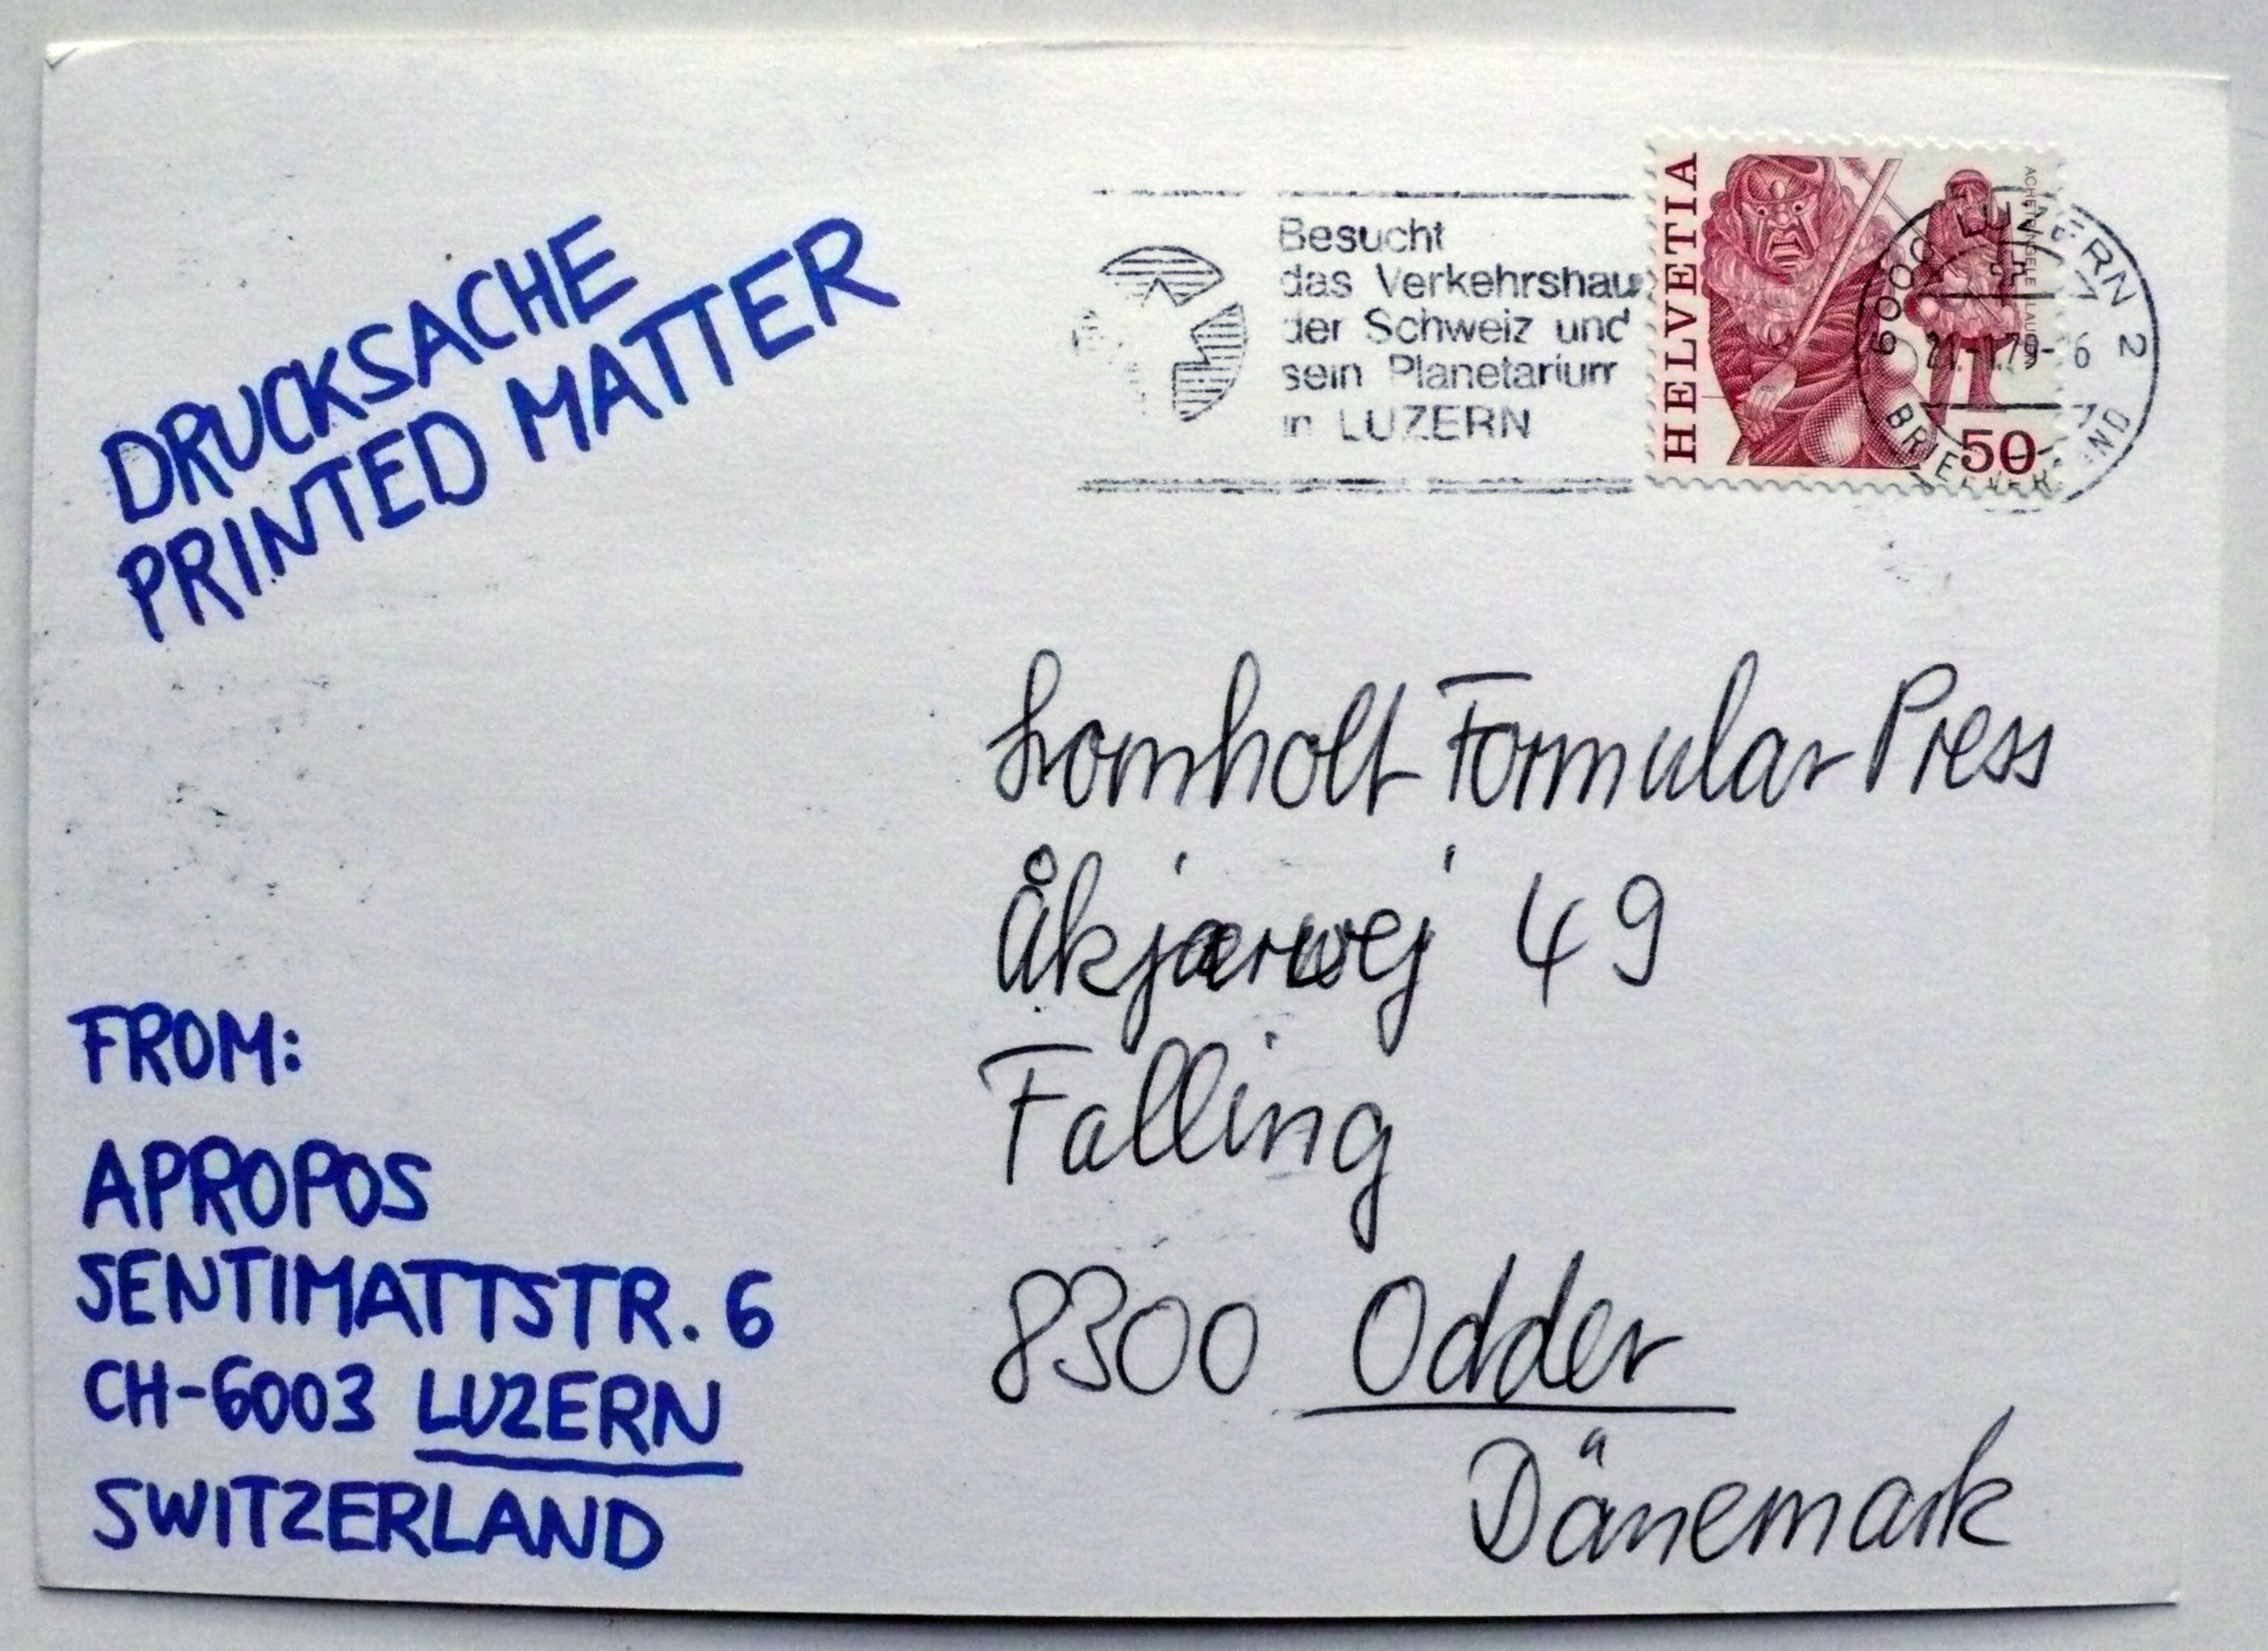 DRUCKSACHE
PRINTED MATTER
Besucht
das Verkehrshau
der Schweiz und
sein Planetarium
in LUZERN
HELVETIA
50
6000 LUZERN 2
Lomholt Formular Press
Åkjærvej 49
Falling
8300 Odder
Dänemark
FROM:
APROPOS
SENTIMATTSTR. 6
CH-6003 LUZERN
SWITZERLAND